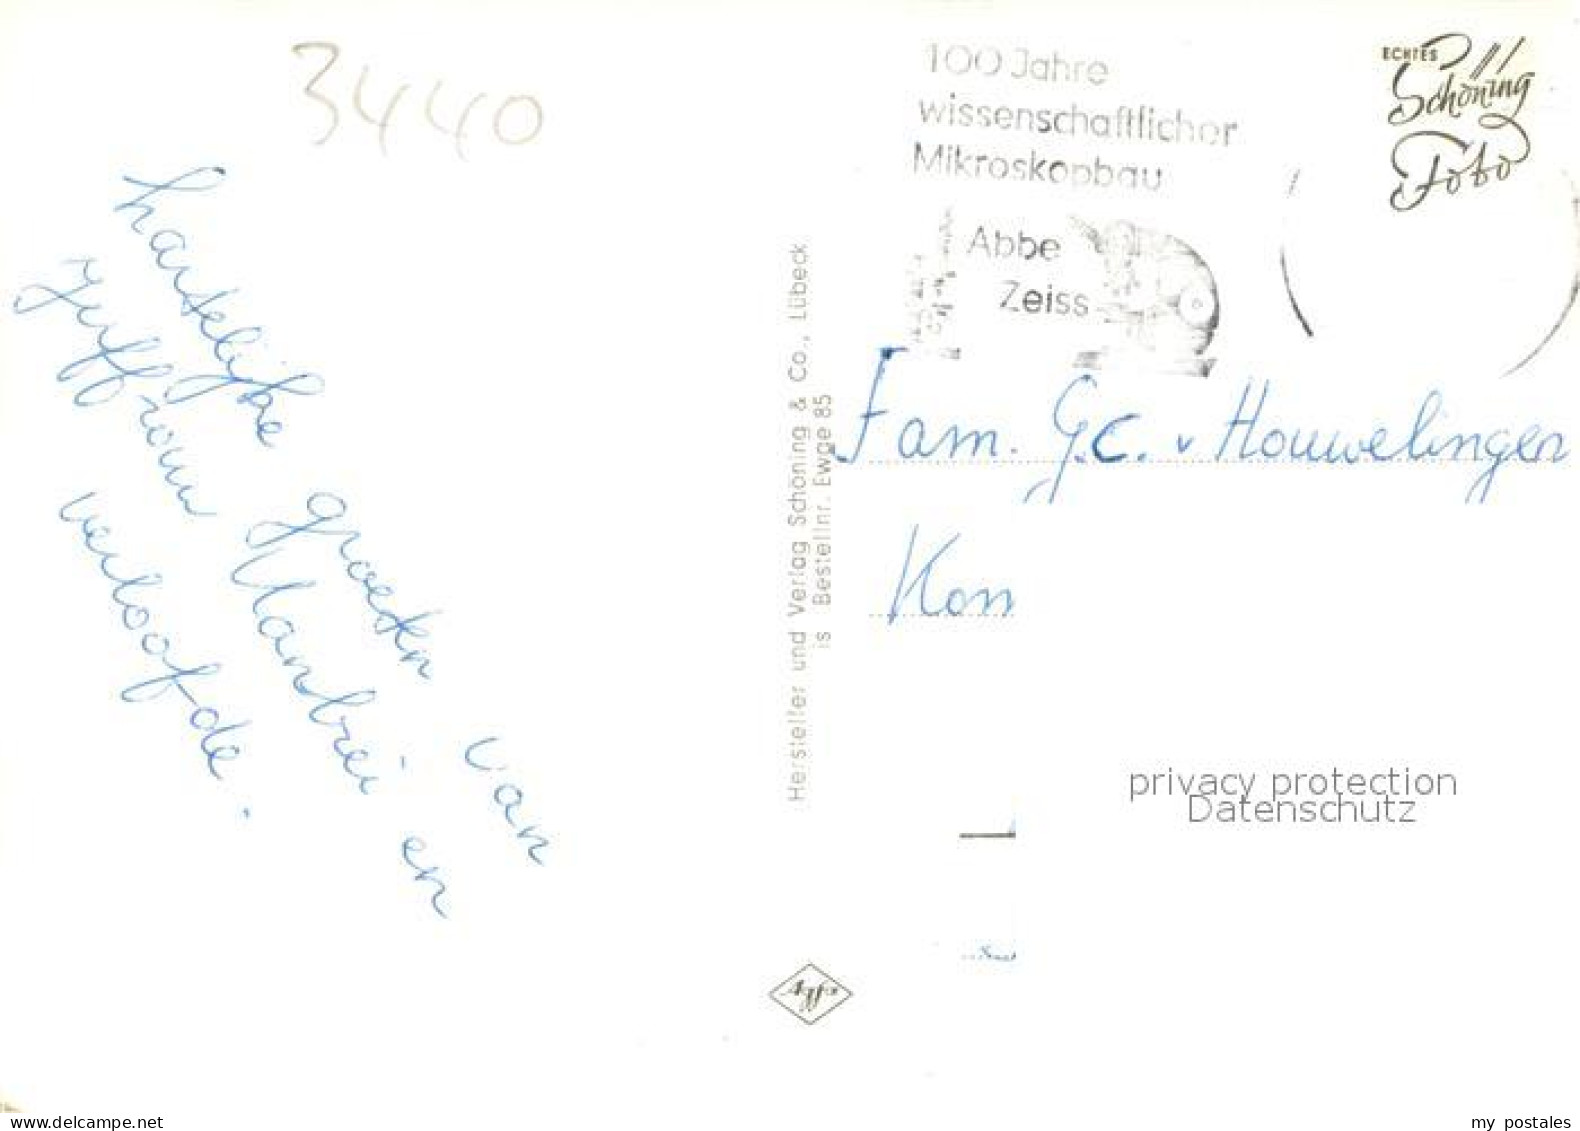 3440
Hartelijke groeten van
Juffrouw Manbrei en
verloofde.
100 Jahre
wissenschaftlicher
Mikroskopbau
Abbe
Zeiss
ECHTES
Schöning
Foto
Hersteller und Verlag Schöning & Co., Lübeck
is Bestellnr. Ewge 85
Fam. G.C. v Houwelingen
Kon
privacy protection
Datenschutz
Agfa
www.delcampe.net
my postales